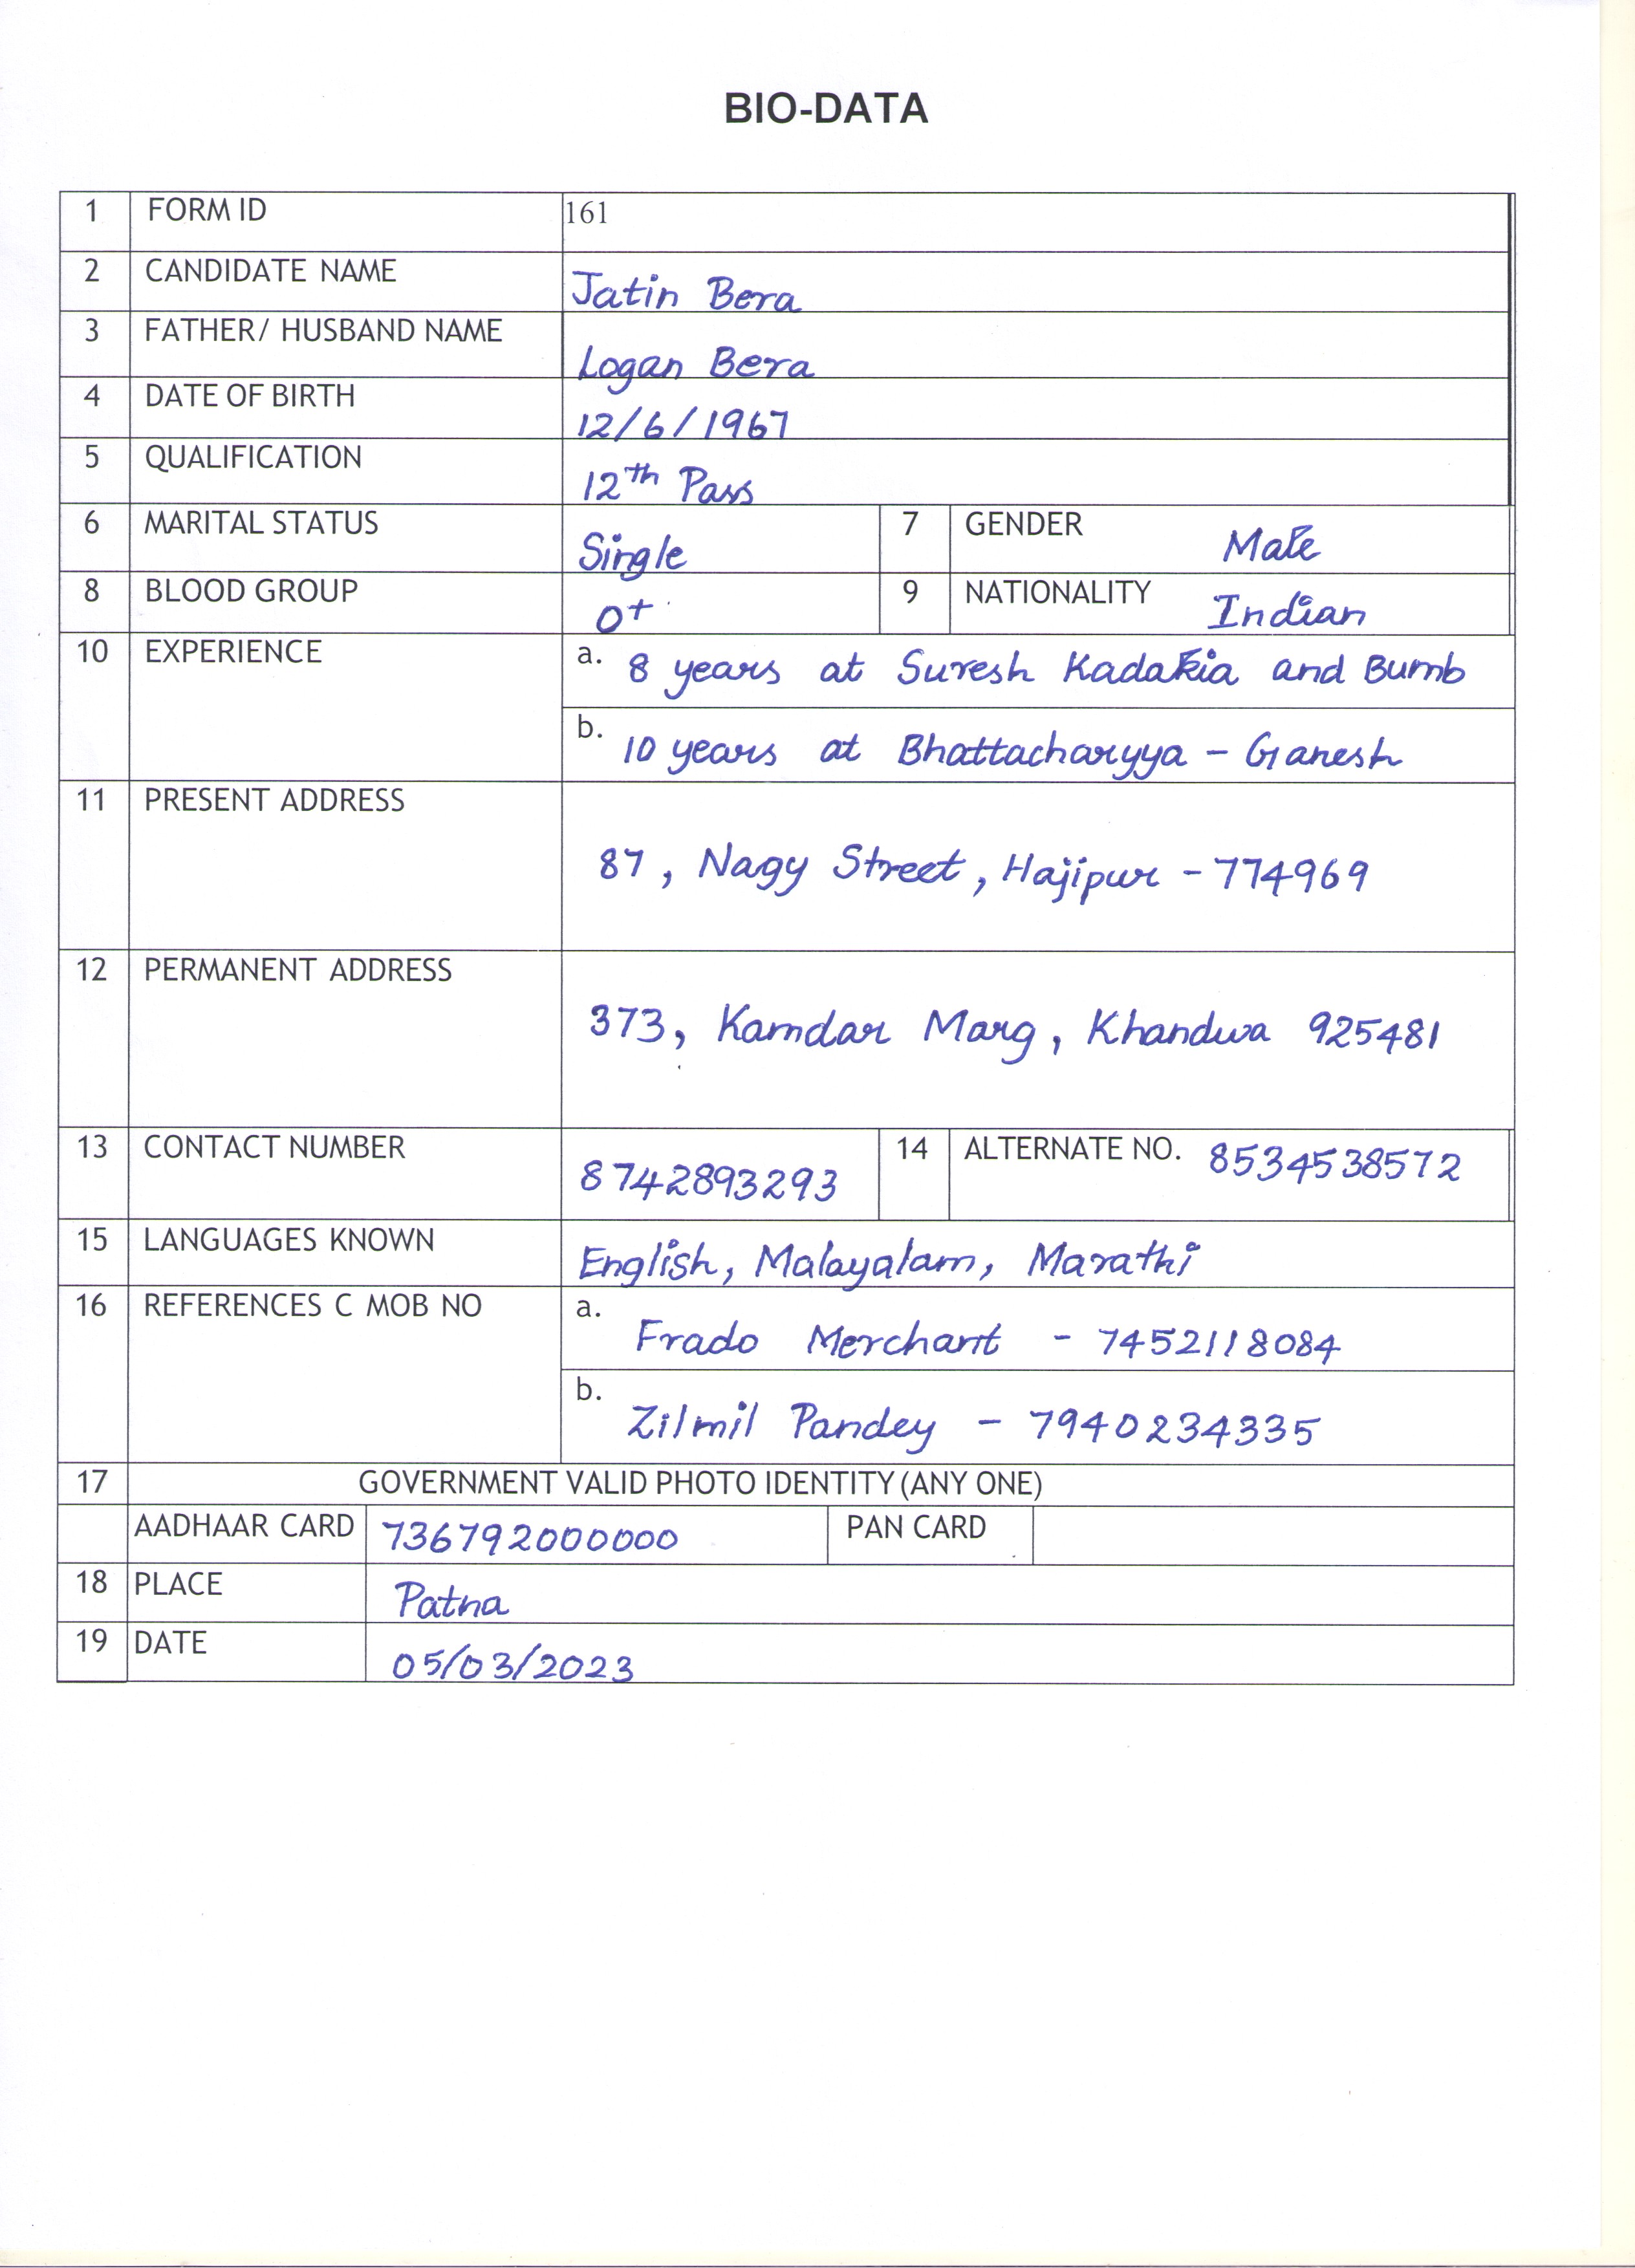 BIO-DATA
1 FORM ID 161
2 CANDIDATE NAME Jatin Bera
3 FATHER/ HUSBAND NAME Logan Bera
4 DATE OF BIRTH 12/6/1967
5 QUALIFICATION 12th Pass
6 MARITAL STATUS Single 7 GENDER Male
8 BLOOD GROUP O+ 9 NATIONALITY Indian
10 EXPERIENCE a. 8 years at Suresh Kadakia and Bumb
b. 10 years at Bhattacharyya - Ganesh
11 PRESENT ADDRESS
87, Nagy Street, Hajipur - 774969
12 PERMANENT ADDRESS
373, Kamdar Marg, Khandwa 925481
13 CONTACT NUMBER 8742893293 14 ALTERNATE NO. 8534538572
15 LANGUAGES KNOWN English, Malayalam, Marathi
16 REFERENCES C MOB NO a. Frado Merchant - 7452118084
b. Zilmil Pandey - 7940234335
17 GOVERNMENT VALID PHOTO IDENTITY (ANY ONE)
AADHAAR CARD 736792000000 PAN CARD
18 PLACE Patna
19 DATE 05/03/2023